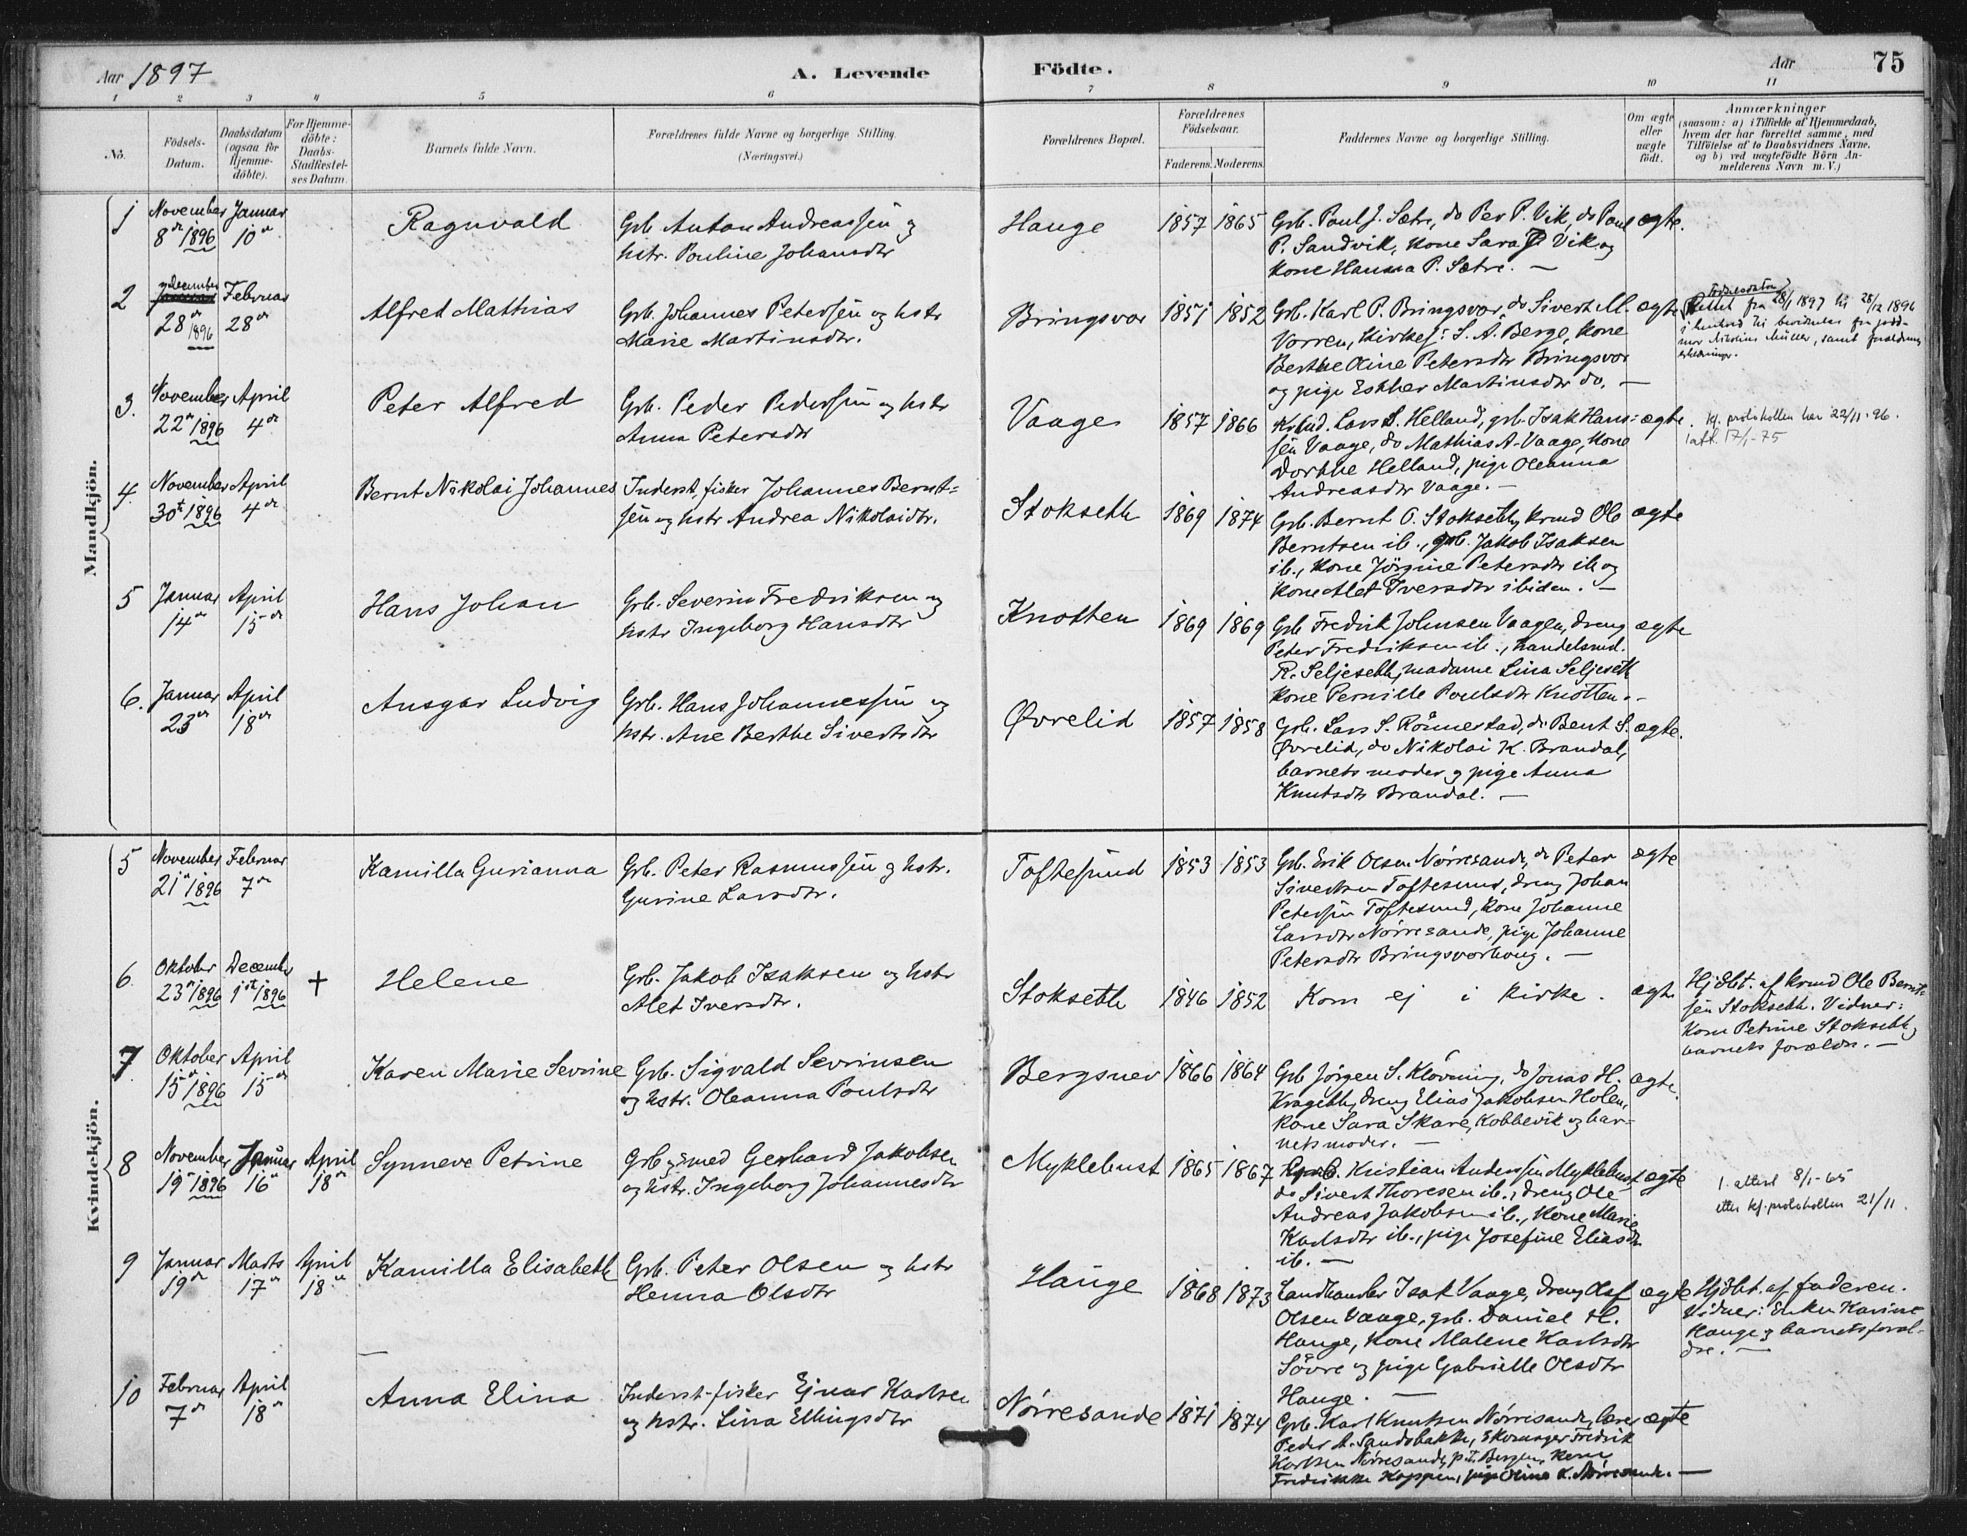 Aar 1897
A. Levende
Födte.
Aar
75
1 2 3 4 5 6 7 8 9 10 11
No.
Födsels-
Datum.
Daabsdatum
(ogsaa for
Hjemme-
döbte).
For Hjemme-
döbte:
Daabs-
Stadfæstel-
ses Datum.
Barnets fulde Navn.
Forældrenes fulde Navne og borgerlige Stilling.
(Næringsvei.)
Forældrenes Bopæl.
Forældrenes
Födselsaar.
Faderens. Moderens.
Faddernes Navne og borgerlige Stilling.
Om ægte
eller
uægte
födt.
Anmærkninger
(saasom: a) i Tilfælde af Hjemmedaab,
hvem der har forrettet samme, med
Tilföielse af to Daabsvidners Navne,
og b) ved uægtefödte Börn An-
melderens Navn m. V.)
Mandkjön.
1
November
8de 1896
Januar
10de
Ragnvald
Grb. Anton Andreassen og
hstr. Pouline Johansdtr
Hauge
1857 1865
Grb. Poul J. Sætre, do Per P. Vik, do Poul
P. Sandvik, kone Sara P. Vik og
kone Hanna P. Sætre. —
ægte.
2
december
28de
1896
Februar
28de
Alfred Mathias
Grb. Johannes Petersen og hstr
Marie Martinsdtr.
Bringsvor
1851 1852
Grb. Karl P. Bringsvor, do Sivert M.
Vorren, Kirkes: S. A. Berge, kone
Berthe Oline Petersdtr Bringsvor
og pige Esther Martinsdtr do. —
ægte
Fødselsdatoen
Rettet fra 28/1 1897 til 28/12 1896
i henhold til bevidnelse fra jord-
mor Nikoline Müller, samt forældrenes
erklæringer.
3.
November
22de 1896
April
4de
Peter Alfred
Grb. Peder Pedersen og hstr
Anna Petersdtr
Vaage
1857 1866
Krmd. Lars L. Helland, grb. Isak Han-
sen Vaage, do Mathias A. Vaage, kone
Dorthe Helland, pige Oleanna
Andreasdtr Vaage. —
ægte.
Kj. protokollen har 22/11-96.
1 att. 17/1-75
4.
November
30te 1896
April
4de
Bernt Nikolai Johannes
Inderst, fisker Johannes Bernt-
sen og hstr Andrea Nikolaidtr.
Stokseth
1869 1874
Grb. Bernt O. Stokseth, krmd Ole
Berntsen ib., grb. Jakob Isaksen
ib., kone Jörgine Petersdtr ib og
kone Alet Iversdtr ibiden. —
ægte
5
Januar
14de
April
15de
Hans Johan
Grb. Severin Fredriksen og
hstr Ingeborg Hansdtr
Knotten
1869 1869
Grb Fredrik Johnsen Vaagen, dreng
Peter Fredriksen ib., handelsmd.
R. Seljeseth, madame Lina Seljeseth
kone Pernille Poulsdtr Knotten. —
ægte
6.
Januar
23de
April
18de
Ansgar Ludvig
Grb. Hans Johannessen og
hstr. Ane Berthe Sivertsdtr
Øvrelid
1857 1858
Grb. Lars S. Rönnestad, do Bent S.
Øvrelid, do Nikolai K. Brandal,
barnets moder og pige Anna
Knutsdtr Brandal. —
ægte.
Kvindekjön.
5
November
21de 1896
Februar
7de
Kamilla Gurianna
Grb. Peter Rasmussen og hstr.
Gurine Larsdtr.
Toftesund
1853 1853
Grb. Erik Olsen Nørresande, do Peter
Sivertsen Toftesund, dreng Johan
Petersen Toftesund, kone Johanne
Larsdtr Nørresande, pige Johanne
Petersdtr Bringsvorhaug. —
ægte
6
Oktober
23de 1896
December
1ste 1896
+
Helene
Grb. Jakob Isaksen og hstr
Alet Iversdtr.
Stokseth
1846 1852
Kom ej i kirke.
ægte
Hjdbt. af krmd Ole Bernt-
sen Stokseth. Vidner:
Kone Petrine Stokseth og
barnets forældre. —
7
Oktober
15de 1896
April
15de
Karen Marie Sevrine
Grb. Sigvald Sevrinsen
og hstr. Oleanna Poulsdtr
Bergsnev
1866 1864
Grb Jörgen S. Klövning, do Jonas H.
Krageth, dreng Elias Jakobsen Holen,
kone Sara Skare, Kobbevik og bar-
nets moder. —
ægte.
8
November
19de 1896
Januar
16de
April
18de
Synneve Petrine
Grb og smed Gerhard Jakobsen
og hstr. Ingeborg Johannesdtr
Myklebust
1865 1867
Grb. Kristian Andersen Myklebust,
do Sivert Thoresen ib., dreng Ole
Andreas Jakobsen ib., kone Marie
Karlsdtr ib., pige Josefine Eliasdtr
ib. —
ægte
1. attest 8/1-65
etter kj. protokollen 21/11.
9
Januar
19de
Marts
17de
April
18de
Kamilla Elisabeth
Grb. Peter Olsen og hstr
Henna Olsdtr
Hauge
1868 1873
Landhandler Isak Vaage, dreng Olaf
Olsen Vaage, grb. Daniel H.
Hauge, kone Malene Karlsdtr
Sövre og pige Gabrielle Olsdtr
Hauge. —
ægte
Hjdbt. af faderen.
Vidner: Enken Karine
Hauge og barnets foræl-
dre. —
10
Februar
7de
April
18de
Anna Elina
Inderst-fisker Ejnar Karlsen
og hstr. Lina Ellingsdtr
Nørresande
1871 1874
Grb. Karl Knutsen Nørresande, lærer
Peder A. Sandsbakk, Skomager Fredrik
Karlsen Nørresande, p.t. Bergen, kone
Fredrikke Hoppen, pige Oline K. Nørresande. —
ægte